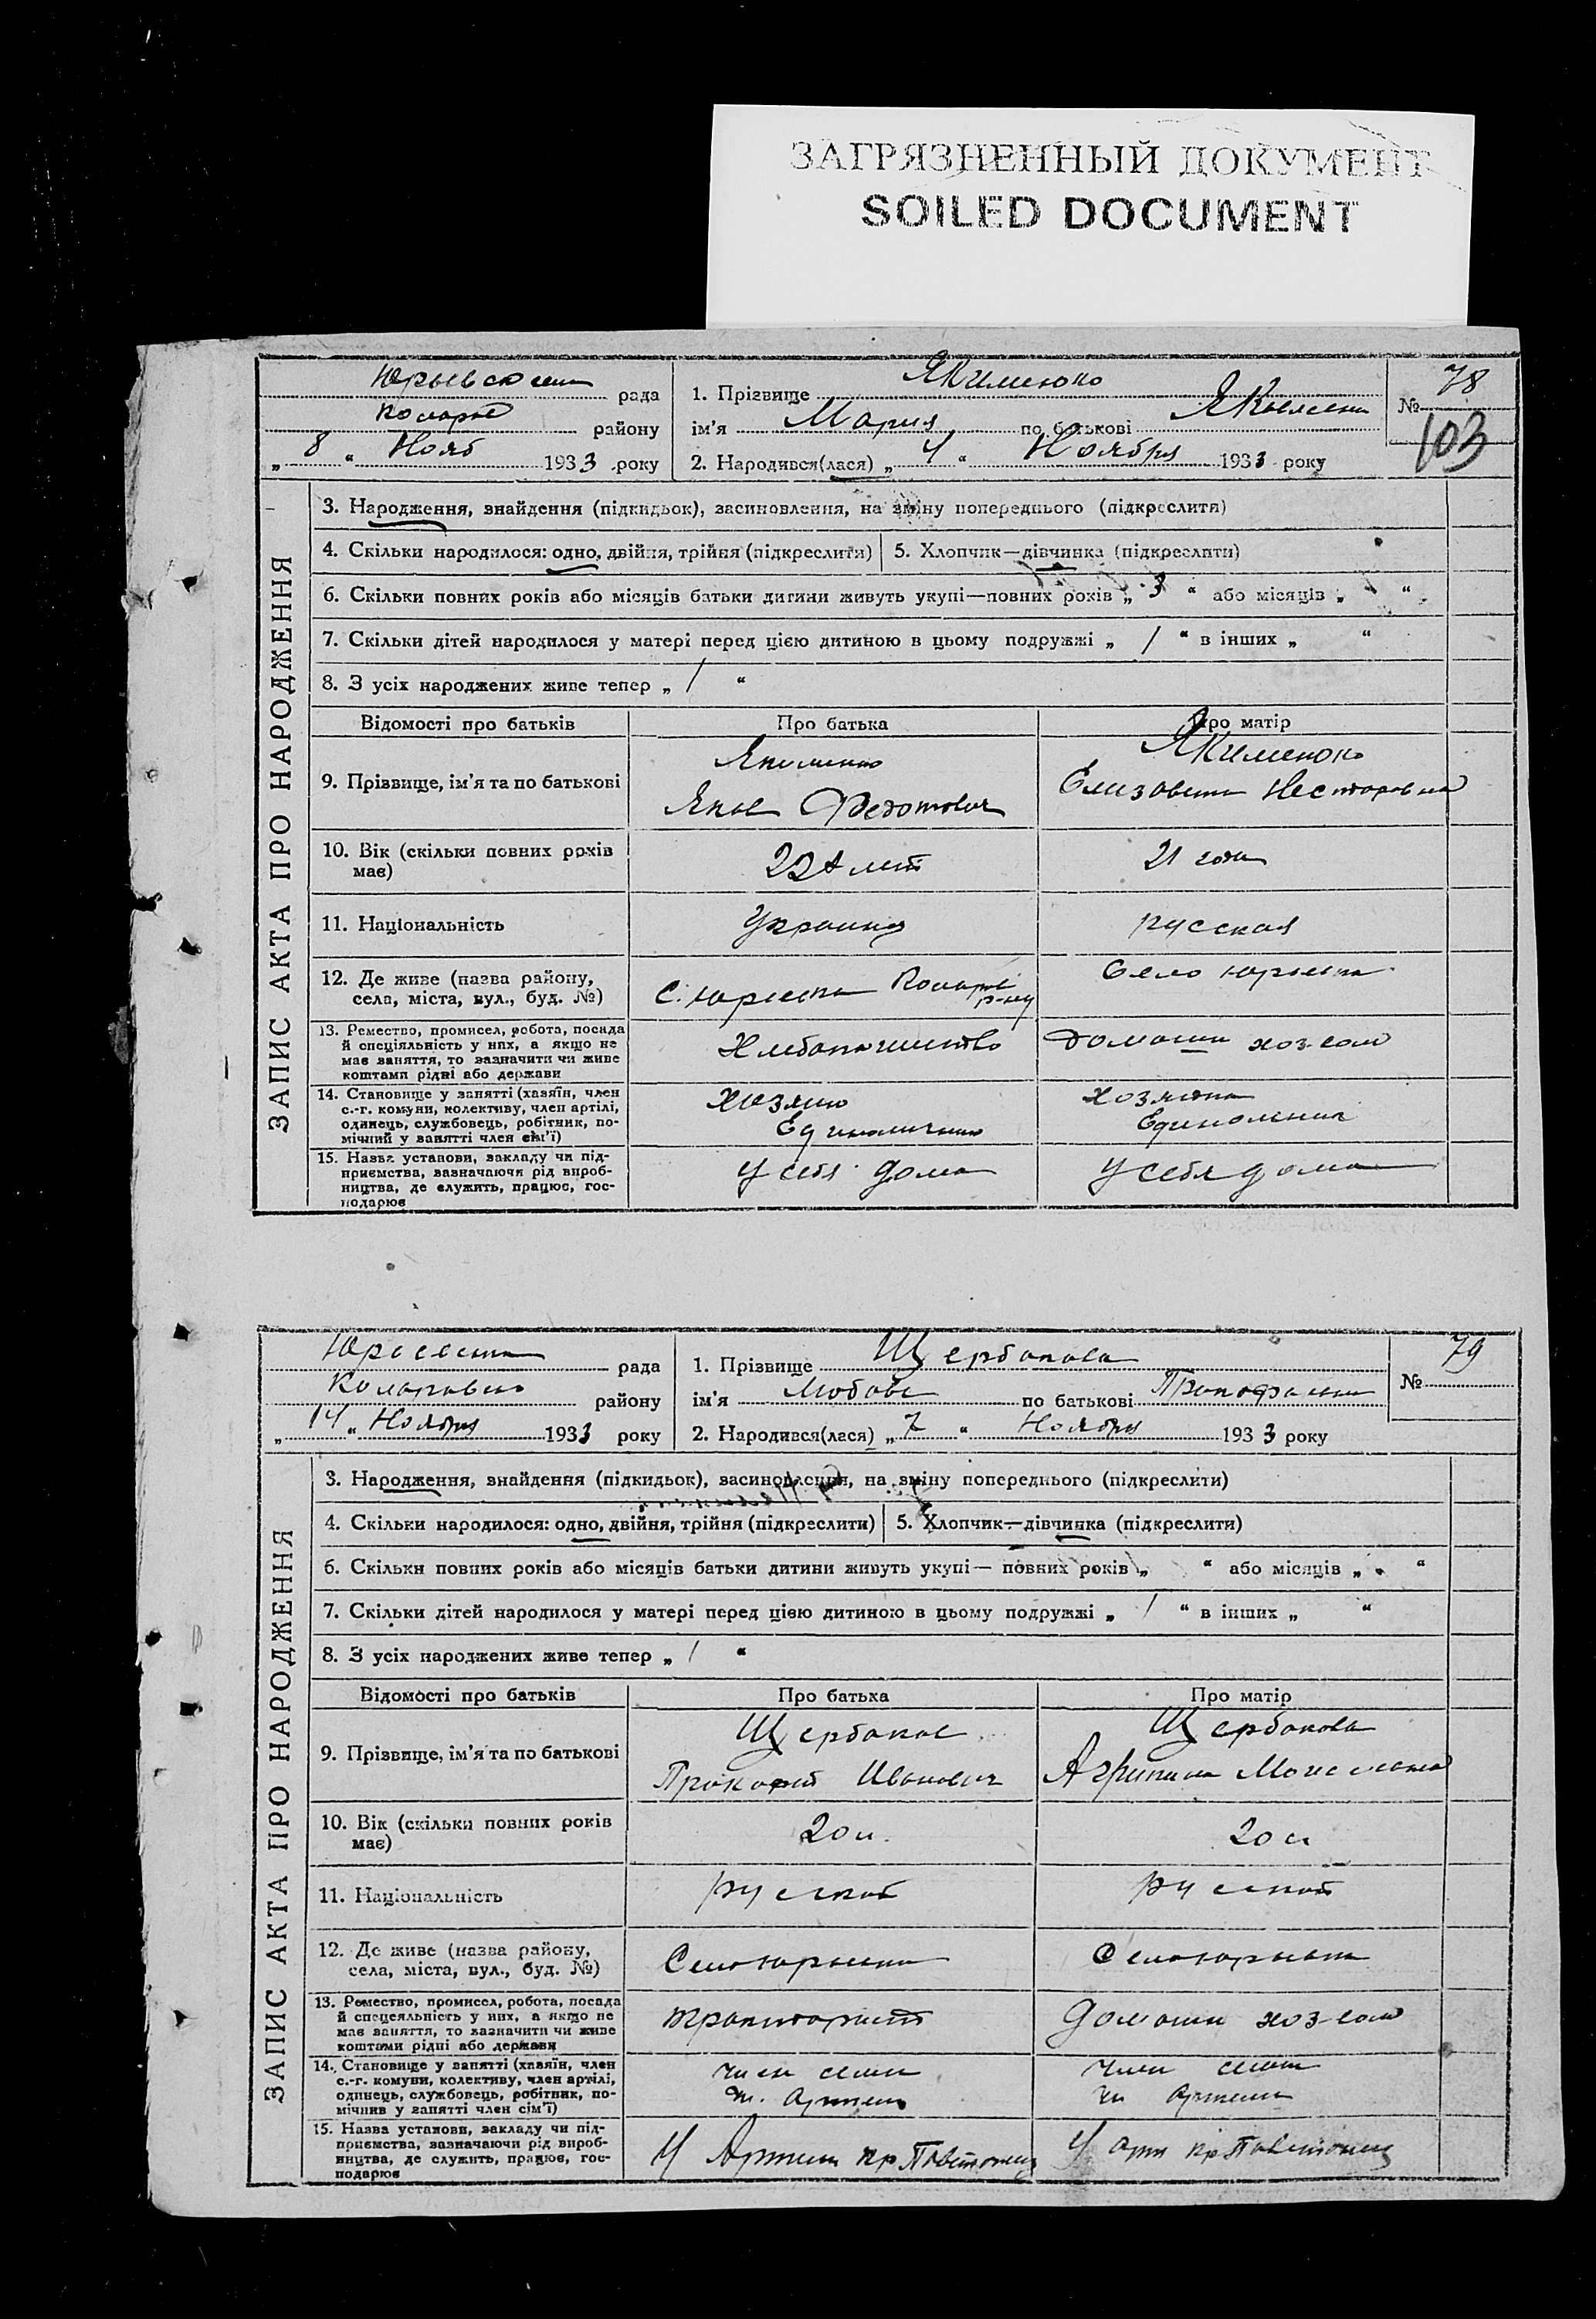 ЗАГРЯЗНЕННЫЙ ДОКУМЕНТ
SOILED DOCUMENT
рада
району
„ 8 “ Нояб 1933 року
1. Прізвище Якименко
ім’я Мария по батькові
2. Народився(лася) „ 4 “ Ноября 1933 року
№ 78
103
ЗАПИС АКТА ПРО НАРОДЖЕННЯ
3. Народження, знайдення (підкидьок), засиновлення, на зміну попереднього (підкреслити)
4. Скільки народилося: одно, двійня, трійня (підкреслити)
5. Хлопчик—дівчинка (підкреслити)
6. Скільки повних років або місяців батьки дитини живуть укупі—повних років „ 3 “ або місяців „ “
7. Скільки дітей народилося у матері перед цією дитиною в цьому подружжі „ / “ в інших „ “
8. З усіх народжених живе тепер „ / “
Відомості про батьків Про батька Про матір
9. Прізвище, ім’я та по батькові
Якименко
Яков Федотович
Якименко
Елизавета Несторовна
10. Вік (скільки повних років
має)
лет
21 года
11. Національність
русская
12. Де живе (назва району,
села, міста, вул., буд. №)
с. р-ну
Село
13. Ремество, промисел, робота, посада
й спеціяльність у них, а якщо не
має заняття, то зазначити чи живе
коштами рідні або держави
Хлебопашество
14. Становище у занятті (хазяїн, член
с.-г. комуни, колективу, член артілі,
одинець, службовець, робітник, по-
мічний у занятті член сім’ї)
хозяин
хозяйка
15. Назва установи, закладу чи під-
приємства, зазначаючи рід вироб-
ництва, де служить, працює, гос-
подарює
у себя дома
у себя дома
рада
району
„ 14 “ Ноября 1933 року
1. Прізвище Щербакова
ім’я Любовь по батькові
2. Народився(лася) „ 7 “ Ноября 1933 року
№ 79
ЗАПИС АКТА ПРО НАРОДЖЕННЯ
3. Народження, знайдення (підкидьок), засиновлення, на зміну попереднього (підкреслити)
4. Скільки народилося: одно, двійня, трійня (підкреслити)
5. Хлопчик—дівчинка (підкреслити)
6. Скільки повних років або місяців батьки дитини живуть укупі— повних років „ “ або місяців „ “
7. Скільки дітей народилося у матері перед цією дитиною в цьому подружжі „ / “ в інших „ “
8. З усіх народжених живе тепер „ / “
Відомості про батьків Про батька Про матір
9. Прізвище, ім’я та по батькові
Щербаков
Прокофий Иванович
Щербакова
Агрипина
10. Вік (скільки повних років
має)
20 л.
20 л
11. Національність
руской
руской
12. Де живе (назва району,
села, міста, вул., буд. №)
Село
Село
13. Ремество, промисел, робота, посада
й спецеяльність у них, а якщо не
має заняття, то зазначити чи живе
коштами рідні або держави
тракторист
14. Становище у занятті (хазяїн, член
с.-г. комуни, колективу, член артілі,
одинець, службовець, робітник, по-
мічнив у занятті член сім’ї)
член
член
15. Назва установи, закладу чи під-
приємства, зазначаючи рід вироб-
ництва, де служить, працює, гос-
подарює